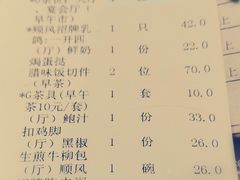 、宴会厅（
早午市）
*顺风招牌乳 1 只 42.0
鸽:一开四
（厅）鲜奶 1 份 22.0
焗蛋挞
腊味饭切件 2 位 70.0
（早茶）
*G茶具(早午 1 套 10.0
茶10元/套）
（厅）鲍汁 1 份 33.0
扣鸡脚
（厅）黑椒 1 份 26.0
生煎牛柳包
（厅）顺风 1 碗 26.0
上
上